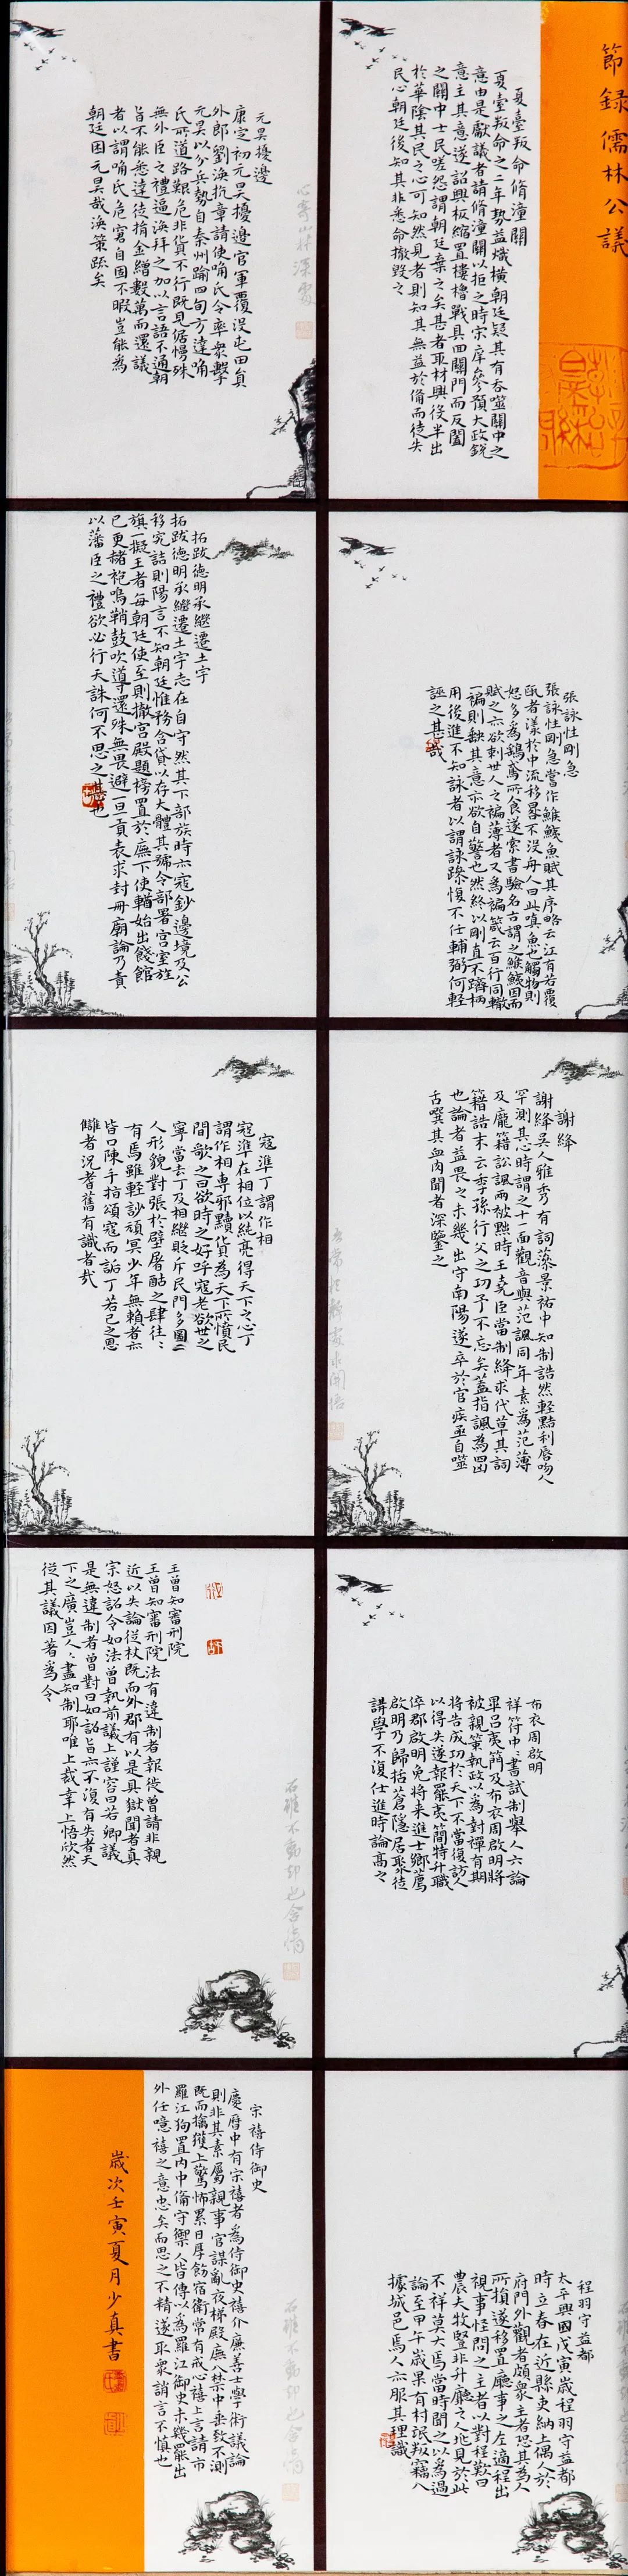 節錄儒林公議
夏臺叛命脩潼關
夏臺叛命之二年勢益熾橫朝廷疑其有吞噬關中之
意由是獻議者請脩潼關以拒之時宋庠參預大政銳
意主其意遂詔興板縮置樓櫓戰具四關門而反闔
之關中士民嗟怨謂朝廷棄之矣甚者取材興役半出
於華陰其民之心可知然見者則知其無益於俻而徒失
民心朝廷後知其非悉命撤毀之
元昊擾邊
康定初元昊擾邊官軍覆沒屯田員
外郎劉渙抗章請使唃氏令率衆擊
元昊以分兵勢自秦州踰四旬方達唃
氏所道路艱危非貨不行既見倨慢殊
無外臣之禮逼渙拜之加以言語不通朝
旨不能悉達徒捐金繒數萬而還議
者以謂唃氏危窘自固不暇豈能為
朝廷困元昊哉渙策踈矣
張詠性剛急
張詠性剛急嘗作鯸鮧魚賦其序略云江有若覆
甌者漾於中流移晷不沒舟人曰此嗔魚也觸物則
怒多為鴟鳶所食遂索書驗名古謂之鯸鮧因而
賦之亦欲刺世人之褊薄者又為褊箴云百行同轍
一褊則缺其意亦欲自警也然終以剛直不躋柄
用後進不知詠者以謂詠躁愎不任輔弼何輕
誣之甚哉
拓跋德明承繼遷土宇
拓跋德明承繼遷土宇志在自守然其下部族時亦寇鈔邊境及公
移究詰則陽言不知朝廷惟務含貸以存大體其號令部署宮室旌
旗一擬王者每朝廷使至則撤宮殿題榜置於廡下使輶始出餞館
已更赭袍鳴鞘鼓吹導還殊無畏避一旦貢表求封冊廟論乃責
以藩臣之禮欲必行天誅何不思之甚也
謝絳
謝絳吳人雅秀有詞藻景祐中知制誥然輕黠利唇吻人
罕測其心時謂之十一面觀音與范諷同年素為范薄
及龐籍訟諷兩被黜時王堯臣當制絳求代草其詞
籍誥末云季孫行父之功予不忘矣蓋指諷為四凶
也論者益畏之未幾出守南陽遂卒於官疾亟自噬
舌噀其血肉聞者深鑒之
寇準丁謂作相
寇準在相位以純亮得天下之心丁
謂作相專邪黷貨為天下所憤民
間歌之曰欲時之好呼寇老欲世之
寧當去丁及相繼貶斥民門多圖二
人形貌對張於壁屠酤之肆往々
有焉雖輕訬頑冥少年無賴者亦
皆口陳手指頌寇而詬丁若己之恩
讎者況耆舊有識者哉
布衣周啟明
祥符中中書試制舉人六論
畢呂夷簡及布衣周啟明將
被親策執政以為封禪有期
將告成功於天下不當復訪人
以得失遂報罷夷簡特升職
倅郡啟明免將來進士鄉薦
啟明乃歸括蒼隱居聚徒
講學不復仕進時論高之
王曾知審刑院
王曾知審刑院法有違制者報徒曾請非親
近以失論從杖既而外郡有以是具獄聞者真
宗怒詔令如法曾執前議上謹容曰若卿議
是無違制者曾對曰如詔旨亦不復有失者天
下之廣豈人々盡知制耶唯上裁幸上悟欣然
從其議因著為令
程羽守益都
太平興國戊寅歲程羽守益都
時立春在近縣吏納土偶人於
府門外觀者頗衆主者恐其為人
所損遂移置廳事之左適程出
視事怪問之主者以對程歎曰
農夫牧豎非升廳之人地見於此
不祥莫大焉當時聞之以為過
論至甲午歲果有村氓叛竊入
據城邑焉人亦服其理識
宗禧侍御史
慶曆中有宗禧者為侍御史禧介廉善士學術議論
則非其素屬親事官謀亂夜梯殿廡入禁中垂致不測
既而擒獲上驚怖累日厚飭宿衛常有戒心禧上言請市
羅江狗置內中俻守禦人皆傳以為羅江御史未幾罷出
外任噫禧之意忠矣而思之不精遂取衆誚言不慎也
歲次壬寅夏月少真書